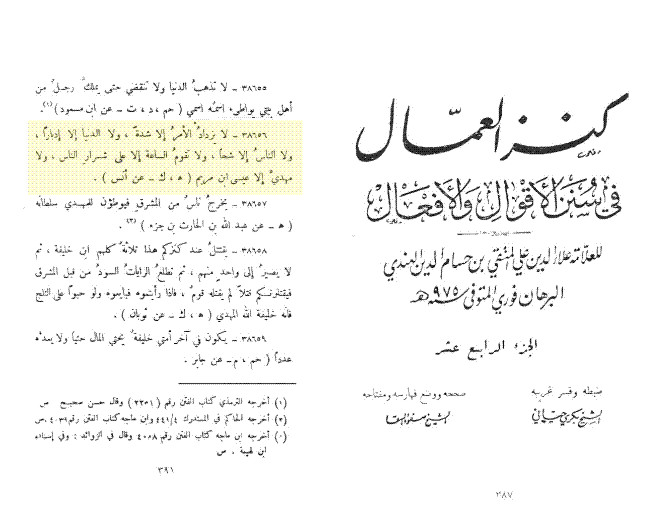 كنز العمال
في سنن الأقوال والأفعال
للعلامة علاء الدين علي المتقي بن حسام الدين الهندي
البرهان فوري المتوفى سنة ٩٧٥ هـ
الجزء الرابع عشر
ضبطه وفسر غريبه
الشيخ بكري حياني
صححه ووضع فهارسه ومفتاحه
الشيخ صفوة السقا
٣٨٧
٣٨٦٥٥ ـ لا تذهبُ الدنيا ولا تنقضي حتى يملكَ رجلٌ من
أهل بيتي يواطىء اسمُه اسمي ( حم ، د ، ت ـ عن ابن مسعود )(١).
٣٨٦٥٦ ـ لا يزدادُ الأمرُ إلا شدةً ، ولا الدنيا إلا إدباراً ،
ولا الناسُ إلا شحاً ، ولا تقومُ الساعة إلا على شرار الناس ، ولا
مهديَّ إلا عيسى ابن مريم ( ه ، ك ـ عن أنس ) .
٣٨٦٥٧ ـ يخرجُ ناسٌ من المشرقِ فيوطؤن للمهدي سلطانَه
( ه ـ عن عبد الله بن الحارث بن جزء )(٣).
٣٨٦٥٨ ـ يقتتلُ عند كنزكم هذا ثلاثةٌ كلهم ابن خليفة ، ثم
لا يصيرُ إلى واحدٍ منهم ، ثم تطلعُ الراياتُ السودُ من قبل المشرق
فيقتلونكم قتلاً لم يقتله قومٌ ، فاذا رأيتموه فبايعوه ولو حبواً على الثلج
فانه خليفة الله المهدي ( ه ، ك ـ عن ثوبان ) .
٣٨٦٥٩ ـ يكون في آخر أمتي خليفةٌ يحثي المال حثياً ولا يعدُّه
عدداً ( حم ، م ـ عن جابر .
(١) أخرجه الترمذي كتاب الفتن رقم ( ٢٢٣١ ) وقال حسن صحيح ص
أخرجه الحاكم في المستدرك ٤٤١/٤ وابن ماجه كتاب الفتن رقم ٤٠٣٩ ص
أخرجه ابن ماجه كتاب الفتن رقم ٤٠٨٨ وقال في الزوائد : وفي إسناده
ابن لهيعة . ص
٣٩١